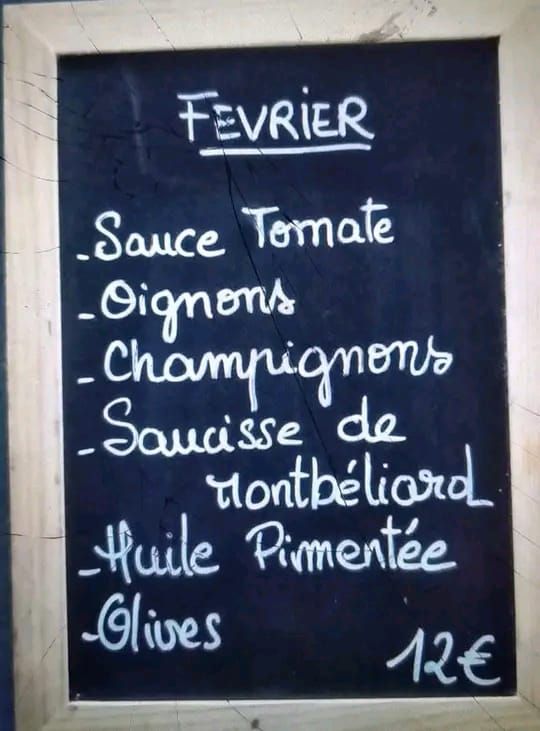 FEVRIER
-Sauce Tomate
-Oignons
-Champignons
-Saucisse de
Montbéliard
-Huile Pimentée
-Olives
12€